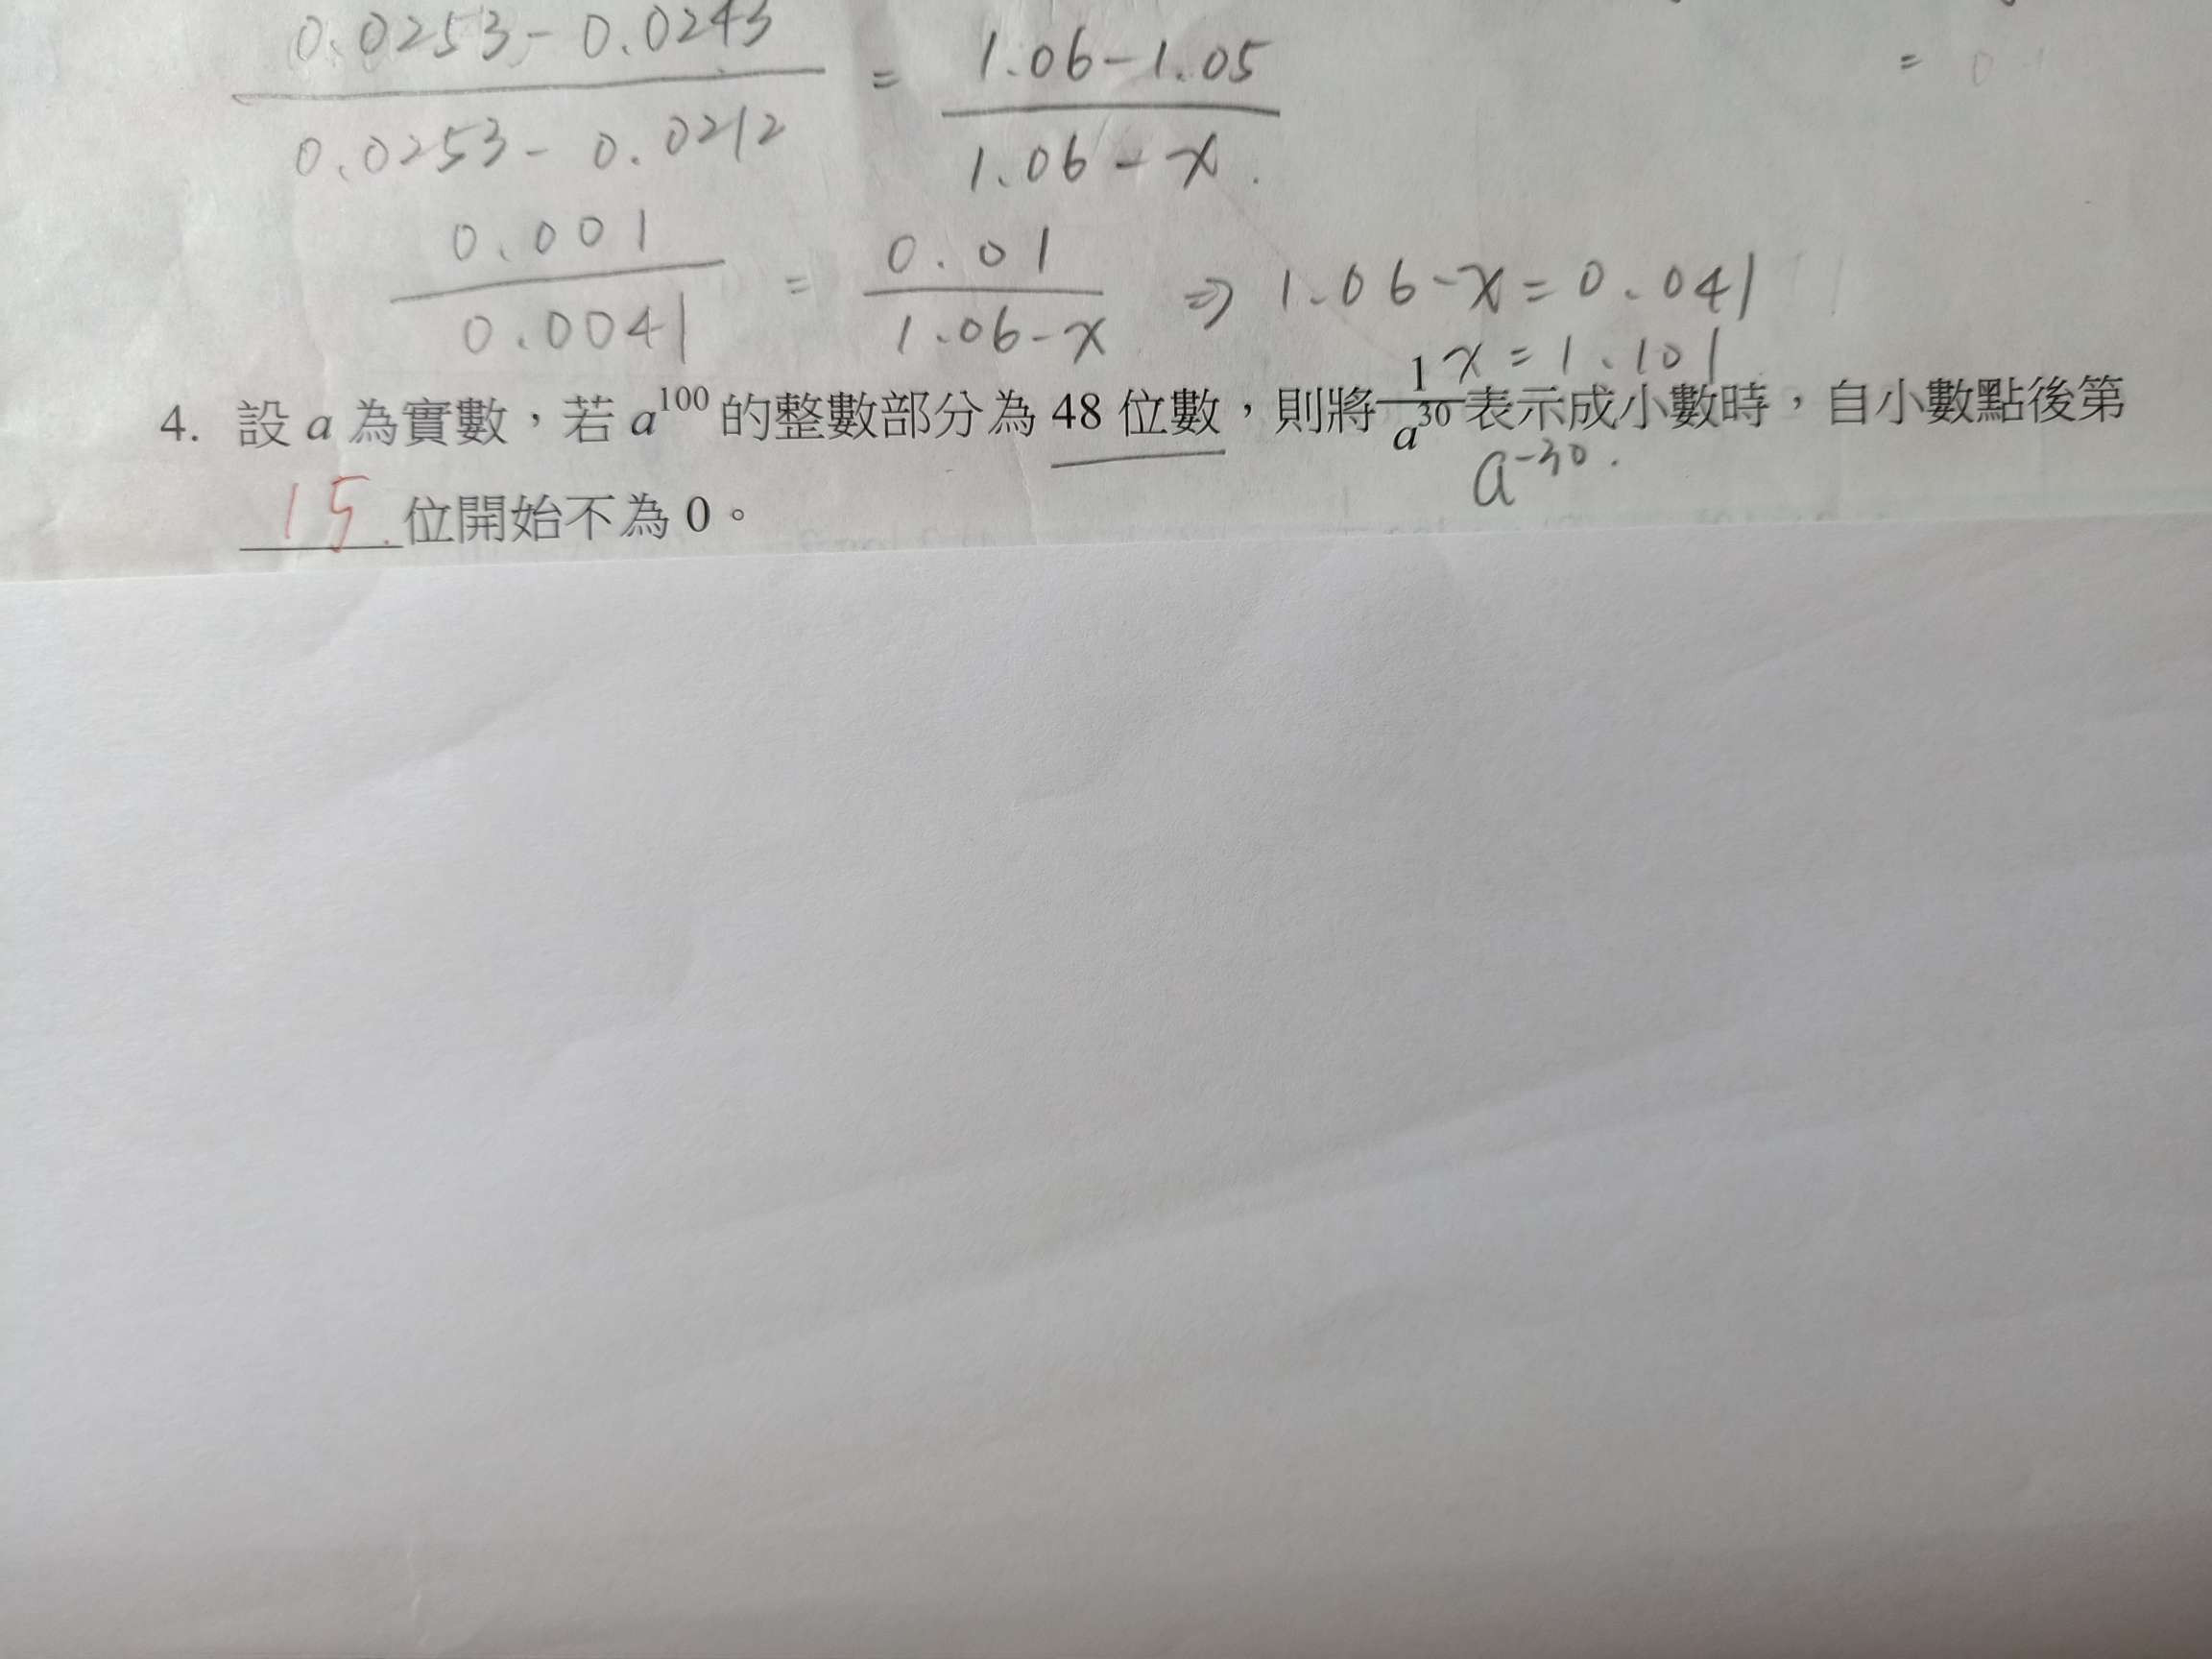 0.0253-0.0243 / 0.0253-0.0212 = 1.06-1.05 / 1.06-x
= 0
0.001 / 0.0041 = 0.01 / 1.06-x ⇒ 1.06-x=0.041
x=1.101
4. 設 a 為實數，若 a^100 的整數部分為 48 位數，則將 1/a^30 表示成小數時，自小數點後第
a^-30.
15 位開始不為 0。